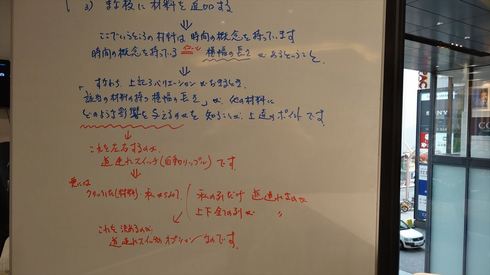 3) まな板に材料を追加する
⇓
ここでいうところの材料は時間の概念を持っています
時間の概念を持っている ⇐⇒ 横幅の長さ があるということ。
⇓
すなわち、上記のバリエーションができるとき
「該当の材料の持つ横幅の長さ」が、他の材料に
どのような影響を与えるのかを知ることが、上達のポイントです。
↓
これを左右するのが、
道連れスイッチ(自動リップル)です。
更には
クリックした(材料)
私の列だけ 道連れなのか
上下全ての列か 〃
これを決めるのが、
道連れスイッチのオプションなのです。
SONY